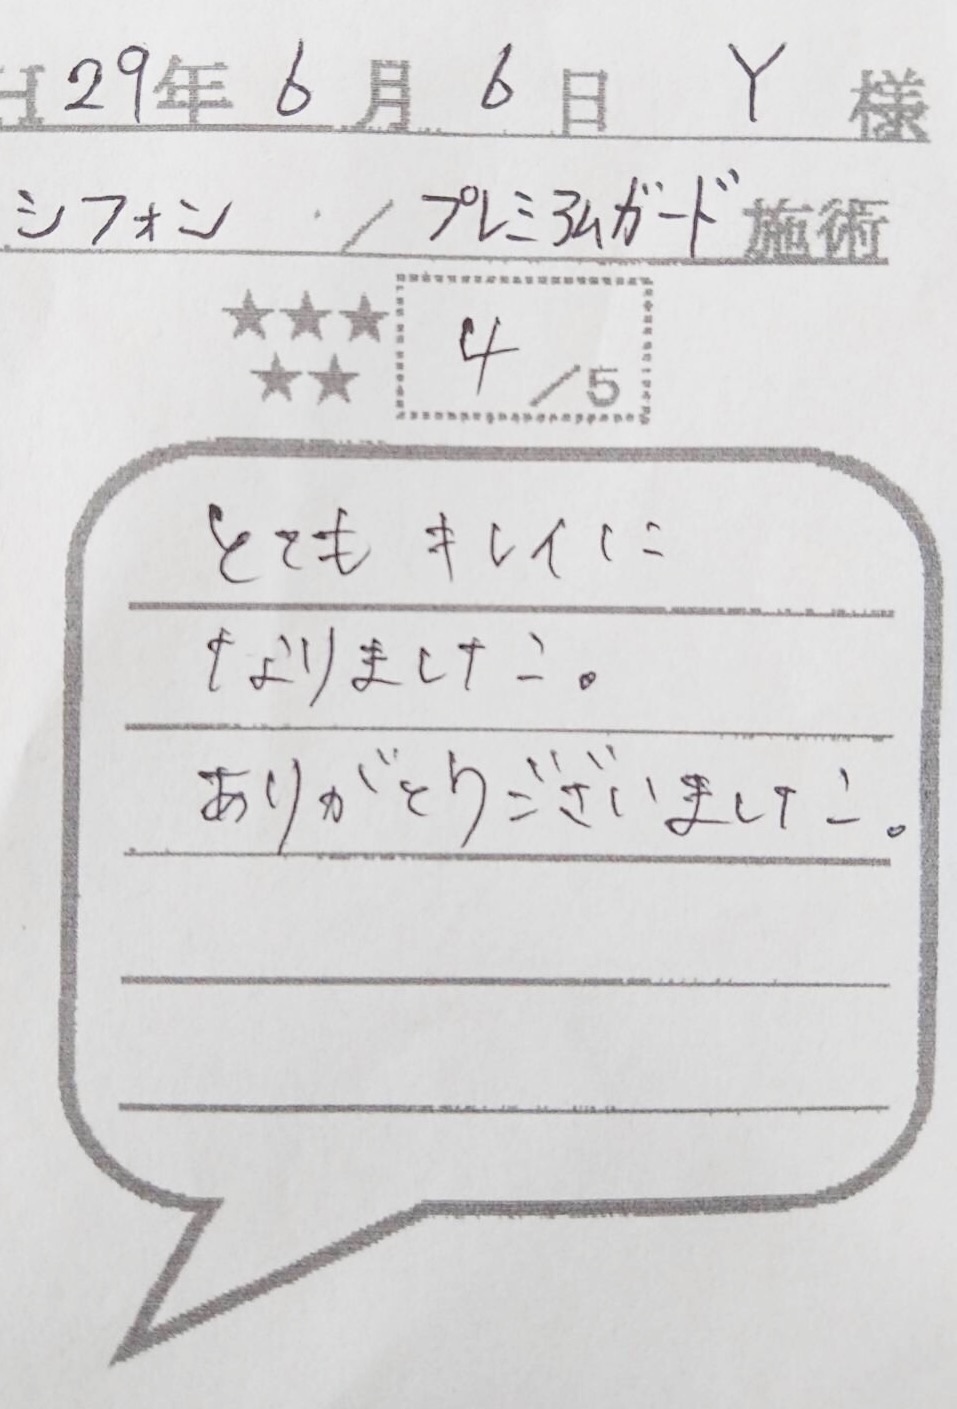 H29年6月6日 Y 様
シフォン / プレミアムガード 施術
★★★
★★ 4/5
とても キレイに
なりました。
ありがとうございました。